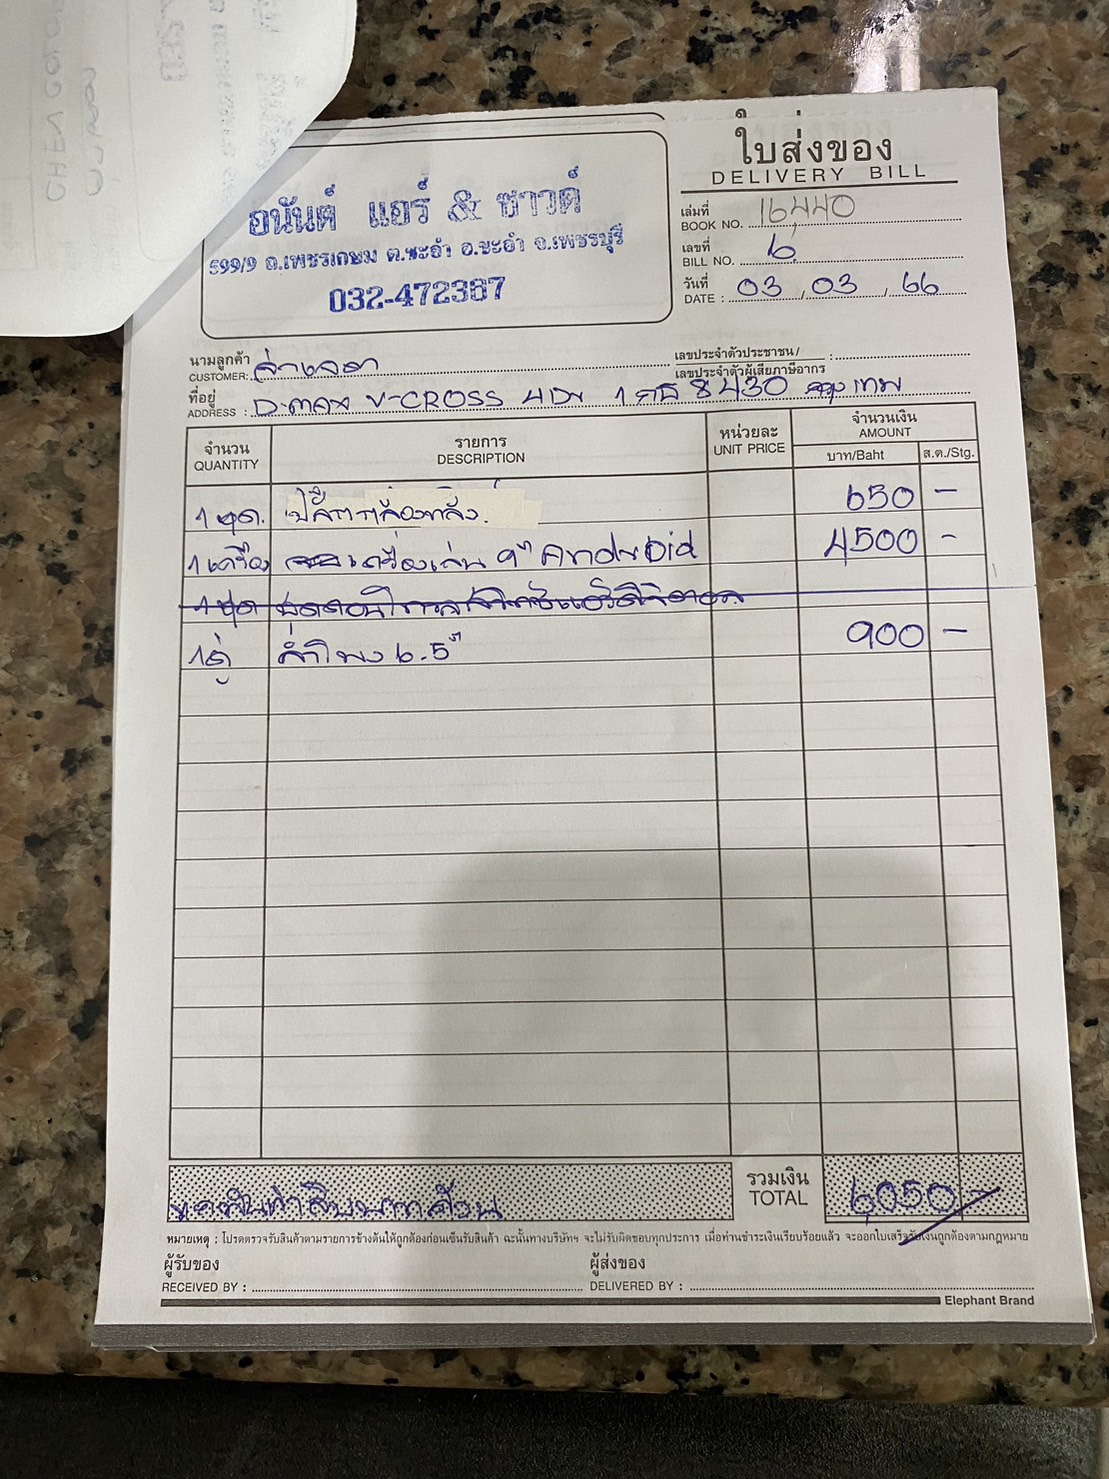 ใบส่งของ
DELIVERY BILL
อนันต์ แอร์ & ซาวด์
599/9 ถ.เพชรเกษม ต.ชะอำ อ.ชะอำ จ.เพชรบุรี
032-472367
เล่มที่
BOOK NO. 16,440
เลขที่
BILL NO. 6
วันที่
DATE : 03 / 03 / 66
นามลูกค้า
CUSTOMER:
เลขประจำตัวประชาชน/
เลขประจำตัวผู้เสียภาษีอากร :
ที่อยู่
ADDRESS : D-max V-CROSS 4DR 1 กธ 8430 กรุงเทพ
จำนวน QUANTITY รายการ DESCRIPTION หน่วยละ UNIT PRICE จำนวนเงิน AMOUNT
บาท/Baht ส.ต./Stg.
1 ชุด. กล้องหลัง. 650 -
1 เครื่อง เครื่องเล่น 9" Android 4500 -
1 ชุด
1 คู่ ลำโพง 6.5" 900 -
หกพันห้าสิบบาทถ้วน รวมเงิน TOTAL 6,050 -
หมายเหตุ : โปรดตรวจรับสินค้าตามรายการข้างต้นให้ถูกต้องก่อนเซ็นรับสินค้า ฉะนั้นทางบริษัทฯ จะไม่รับผิดชอบทุกประการ เมื่อท่านชำระเงินเรียบร้อยแล้ว จะออกใบเสร็จรับเงินถูกต้องตามกฎหมาย
ผู้รับของ
RECEIVED BY :
ผู้ส่งของ
DELIVERED BY :
Elephant Brand